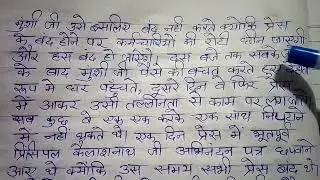 मुंशी जी उसे इसलिए बंद नहीं करते क्योंकि प्रेस
के बंद होने पर कर्मचारियों की रोटी छीन जाएगी
और हम बंद हो जाएंगे, दस बजे तक सबके
के बाद मुंशी जी प्रेस को बंद करते
रूप में घर पहुंचते, दूसरे दिन वे फिर प्रेस
में आकर उसी तल्लीनता से काम पर लग जाते
सब कुछ वे एक एक करके एक साथ निपटाने
में नहीं थकते थे। एक दिन प्रेस में भूतपूर्व
प्रिंसिपल कैलाशनाथ जी अभिनंदन पत्र छपवाने
आए थे क्योंकि उस समय सभी प्रेस बंद थे।